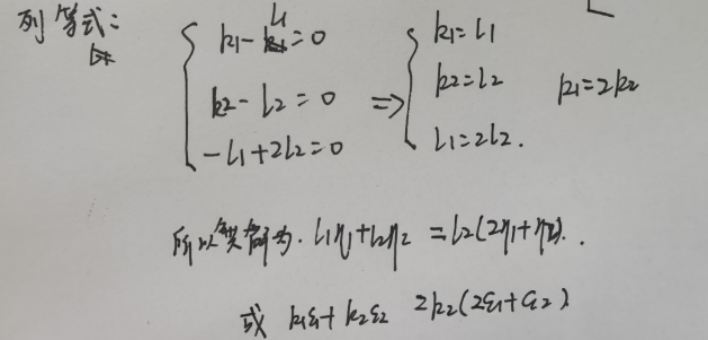 列等式：
k1-l1=0
k2-l2=0
-l1+2l2=0
⇒
k1=l1
k2=l2
l1=2l2.
k1=2k2
所以公共解为. l1η1+l2η2 =l2(2η1+η2).
或 k1ξ1+k2ξ2 2k2(2ξ1+ξ2)